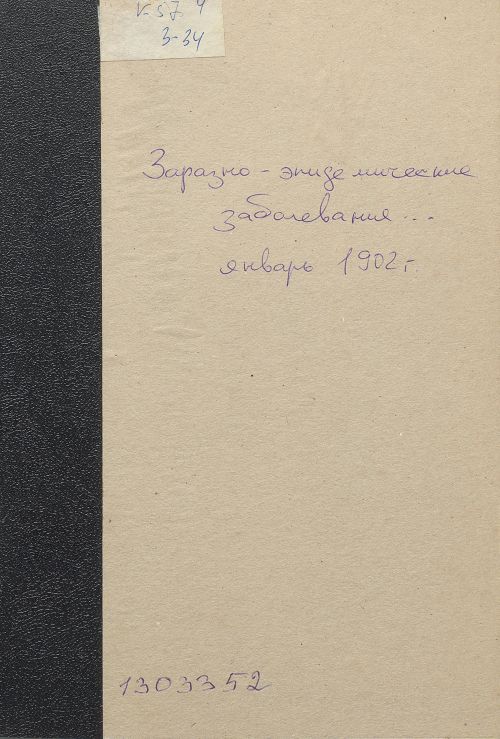 З-34
Заразно-эпидемические
заболевания...
январь 1902 г.
1303352